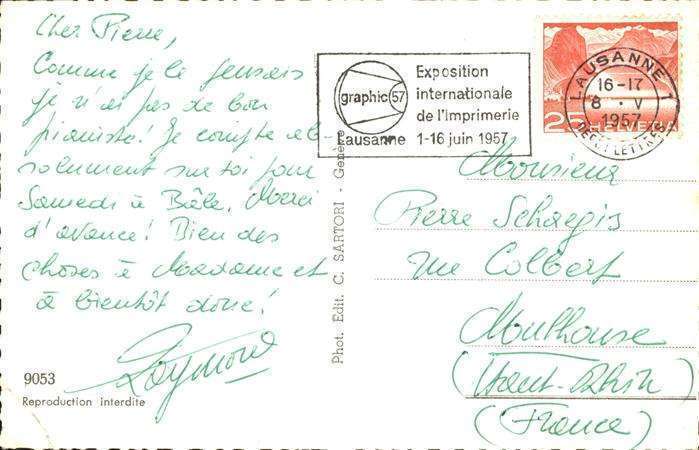 Cher Pierre,
Comme je le pensais
je n'ai pas de bon
pianiste! Je compte ab-
solument sur toi pour
Samedi à Bâle. Merci
d'avance! Bien des
choses à Madame et
à bientôt donc!
Raymond
9053
Reproduction interdite
Phot. Edit. C. SARTORI - Genève
graphic 57
Lausanne
Exposition
internationale
de l'Imprimerie
1-16 juin 1957
LAUSANNE 1
16-17
8 · V
1957
25 HELVETIA
Monsieur
Pierre
rue Colbert
Moulhouse
(Haut-Rhin)
(France)